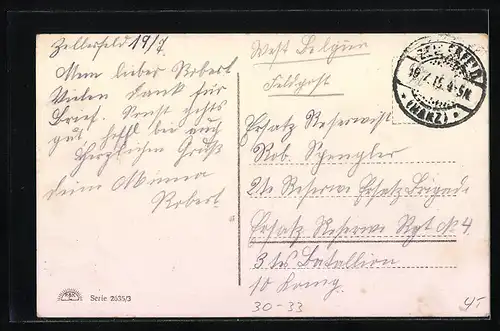 Zellerfeld 19/7.
Mein lieber Robert
Vielen Dank für
Brief. Sonst gehts
gut, hoffe bei euch
Herzlichen Gruß
deine Minna
Robert
West Belgien
Feldpost
ZELLERFELD
19.7.15.4-5N.
* (HARZ) *
Ersatz Reservist
Rob. Spengler
2te Reserve Ersatz Brigade
Ersatz Reserve Rgt No 4
3tes Batallion
10 Komp.
30-33
Serie 2635/3
4,-